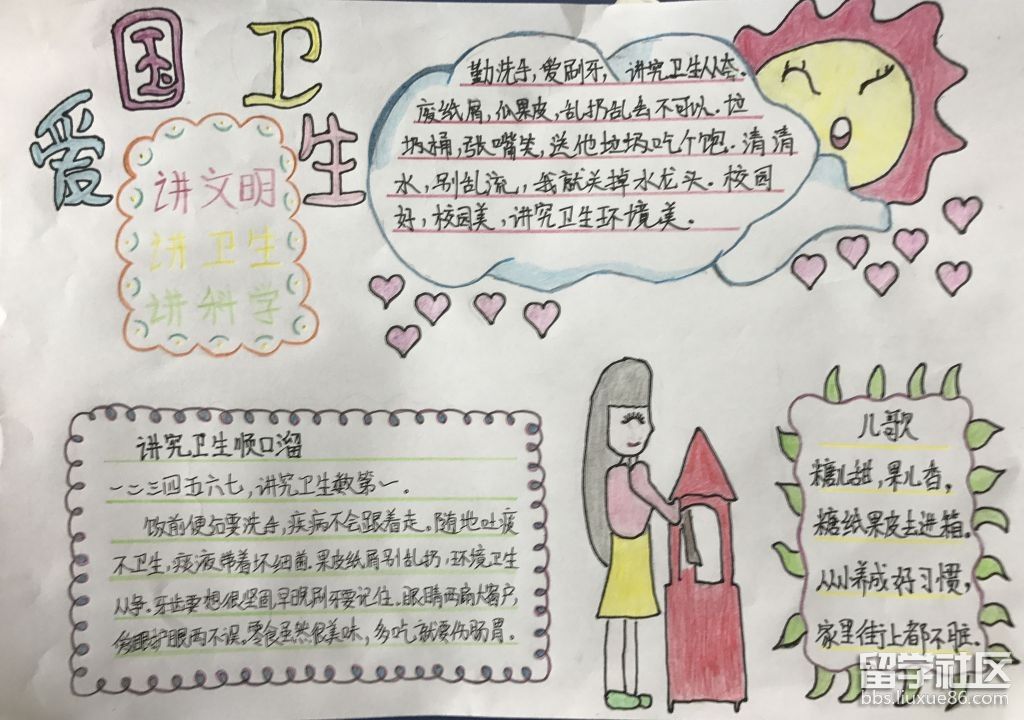 爱国卫生
讲文明
讲卫生
讲科学
勤洗手,爱刷牙,讲究卫生从
废纸屑,瓜果皮,乱扔乱丢不可以.垃
圾桶,张嘴笑,送他垃圾吃个饱.清清
水,别乱流,我就关掉水龙头.校园
好,校园美,讲究卫生环境美。
讲究卫生顺口溜
一二三四五六七,讲究卫生数第一.
饭前便后要洗手,疾病不会跟着走。随地吐痰
不卫生,痰液带着坏细菌.果皮纸屑别乱扔,环境卫生
从争.牙齿要想很坚固,早晚刷牙要记住。眼睛两扇大窗户,
护眼两不误.零食虽然很美味,多吃就要伤肠胃.
儿歌
糖儿甜,果儿香,
糖纸果皮丢进箱.
从小养成好习惯,
家里街上都不脏.
留学社区
bbs.liuxue86.com